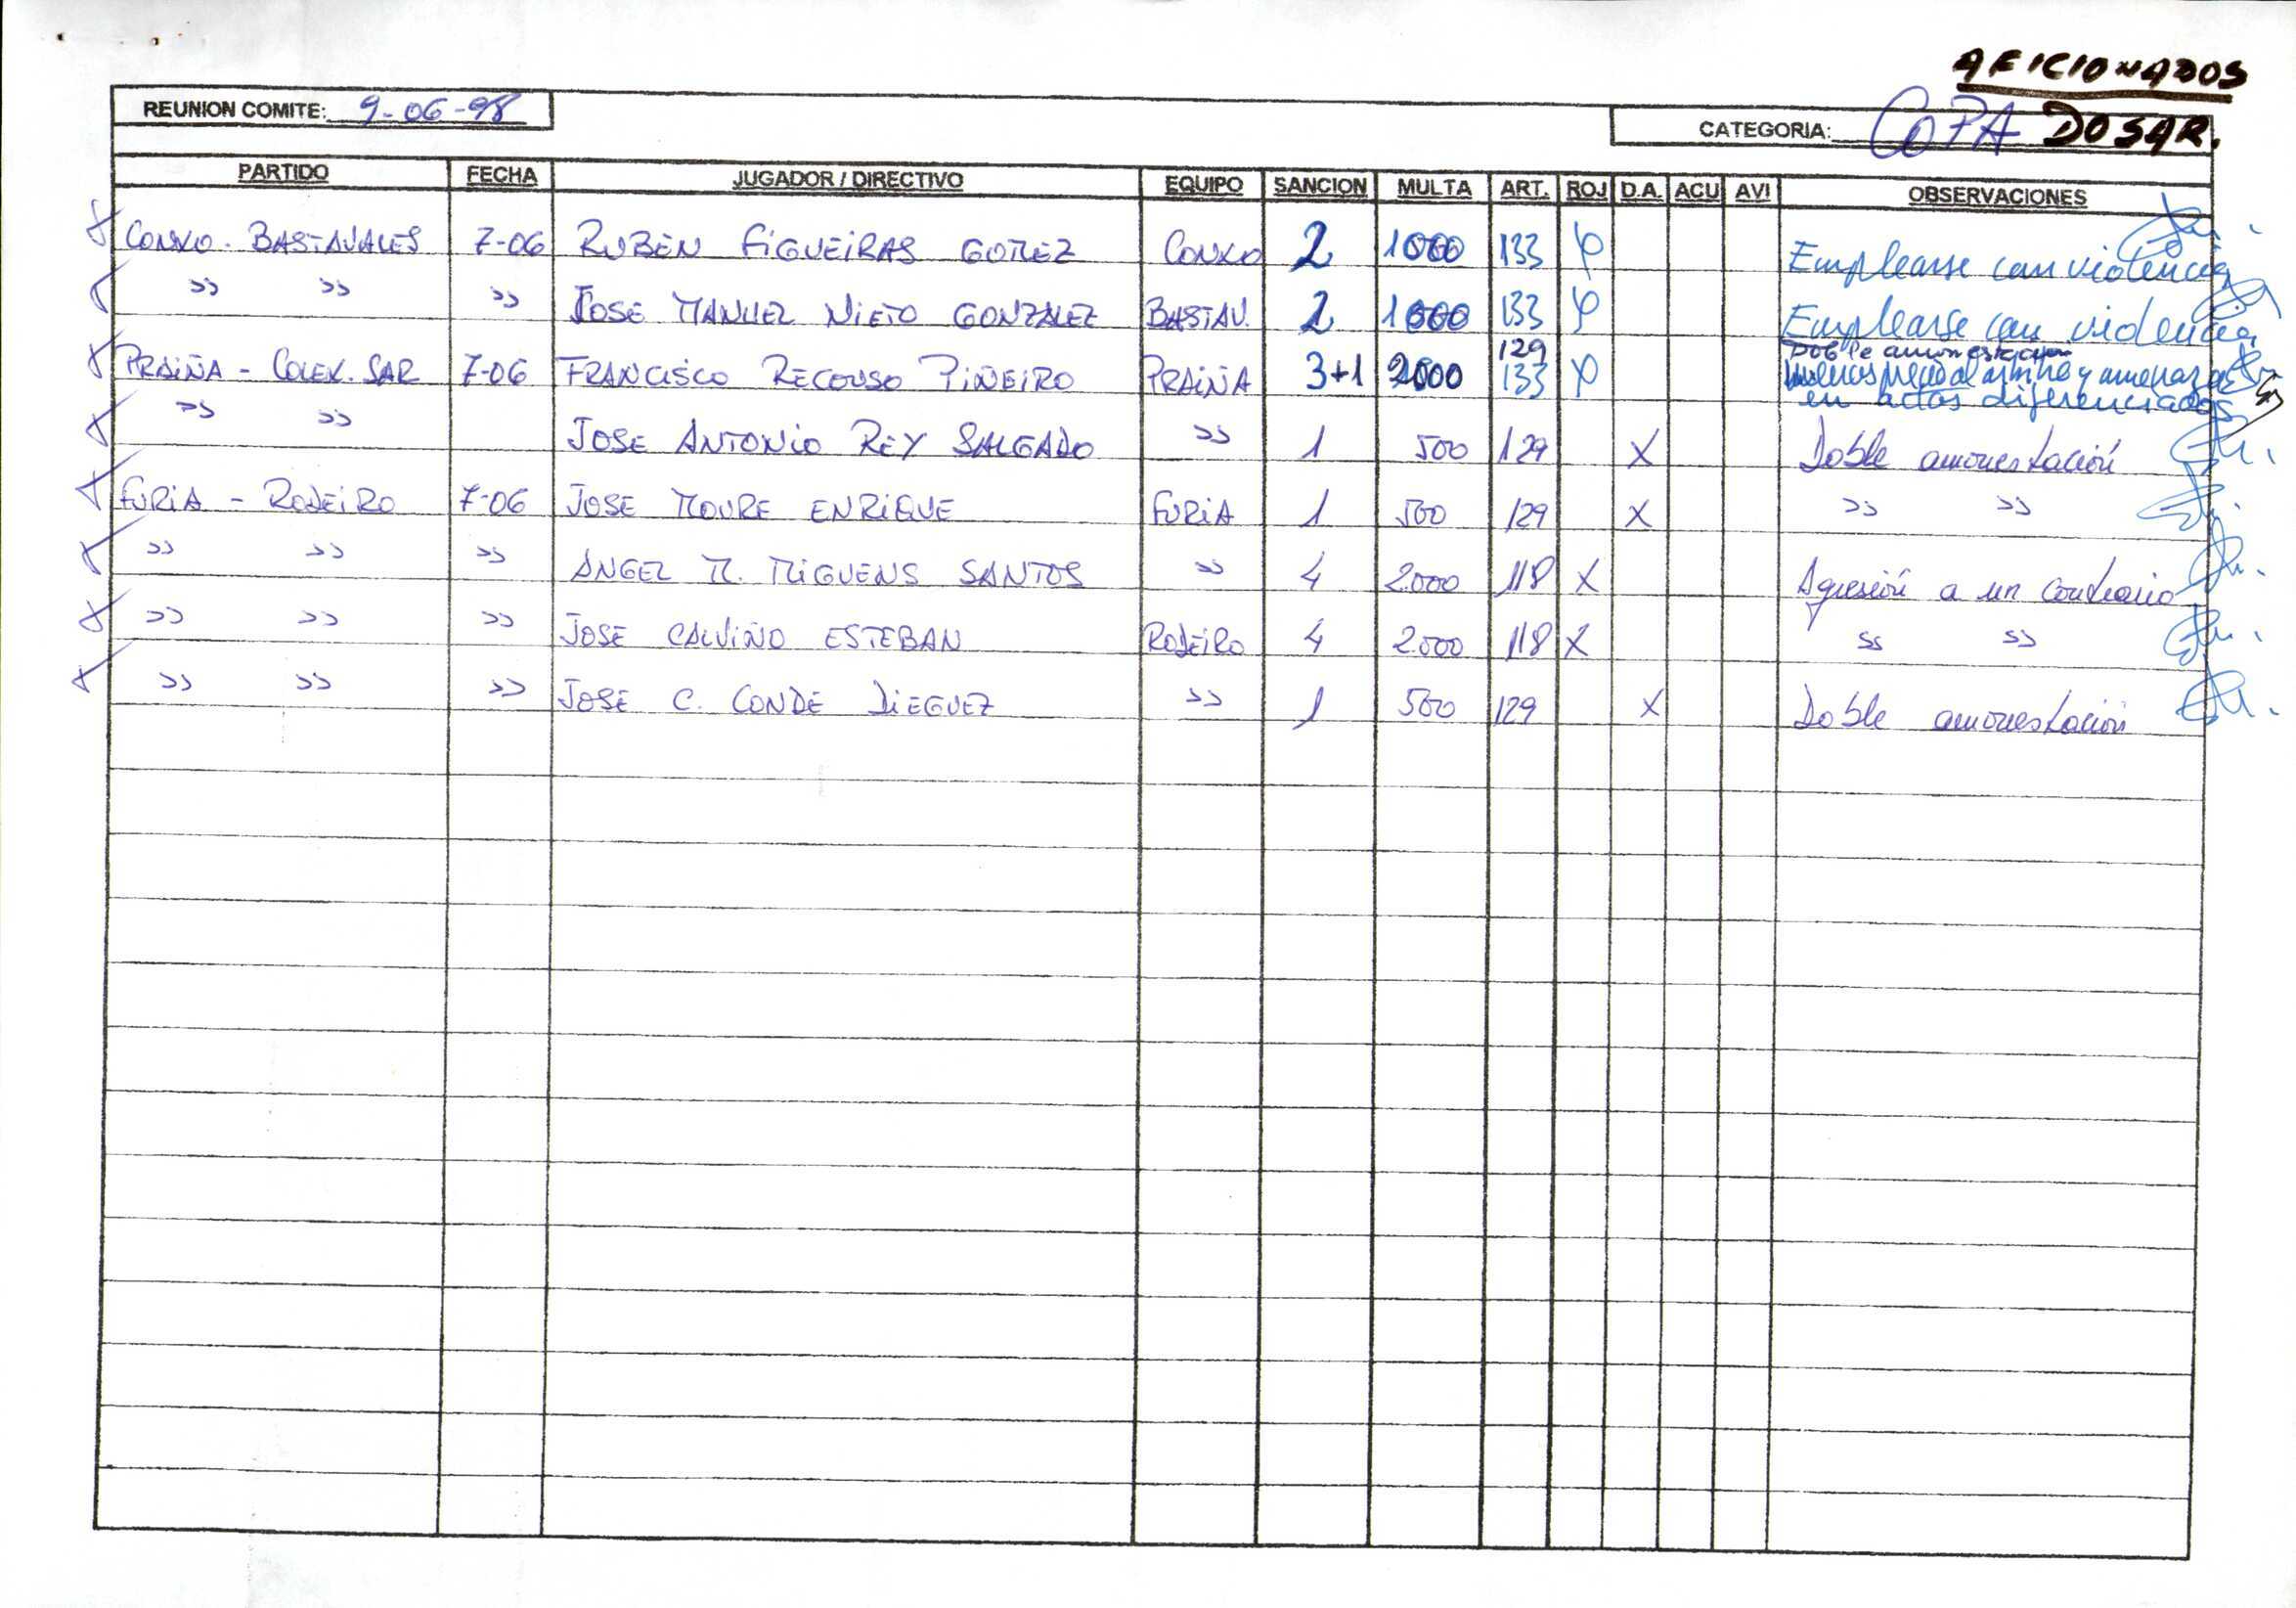 AFICIONADOS
REUNION COMITE: 9-06-98
CATEGORIA: COPA DO SAR.
PARTIDO FECHA JUGADOR / DIRECTIVO EQUIPO SANCION MULTA ART. ROJ D.A. ACU AVI OBSERVACIONES
CONXO - BASTAVALES 7-06 RUBEN FIGUEIRAS GOMEZ CONXO 2 1000 133 Emplearse con violencia
>> >> >> JOSE MANUEL NIETO GONZALEZ BASTAV. 2 1000 133 Emplearse con violencia
PRAIÑA - COLEX. SAR 7-06 FRANCISCO RECOUSO PIÑEIRO PRAIÑA 3+1 2000 129 133 Doble amonestacion
Menosprecio al arbitro y amenazas
en actos diferenciados
>> >> JOSE ANTONIO REY SALGADO >> 1 500 129 X Doble amonestación
FURIA - RODEIRO 7-06 JOSE MOURE ENRIQUE FURIA 1 500 129 X >> >>
>> >> >> ANGEL M. MIGUENS SANTOS >> 4 2.000 118 X Agresión a un contrario
>> >> >> JOSE CALVIÑO ESTEBAN RODEIRO 4 2.000 118 X >> >>
>> >> >> JOSE C. CONDE DIEGUEZ >> 1 500 129 X Doble amonestación